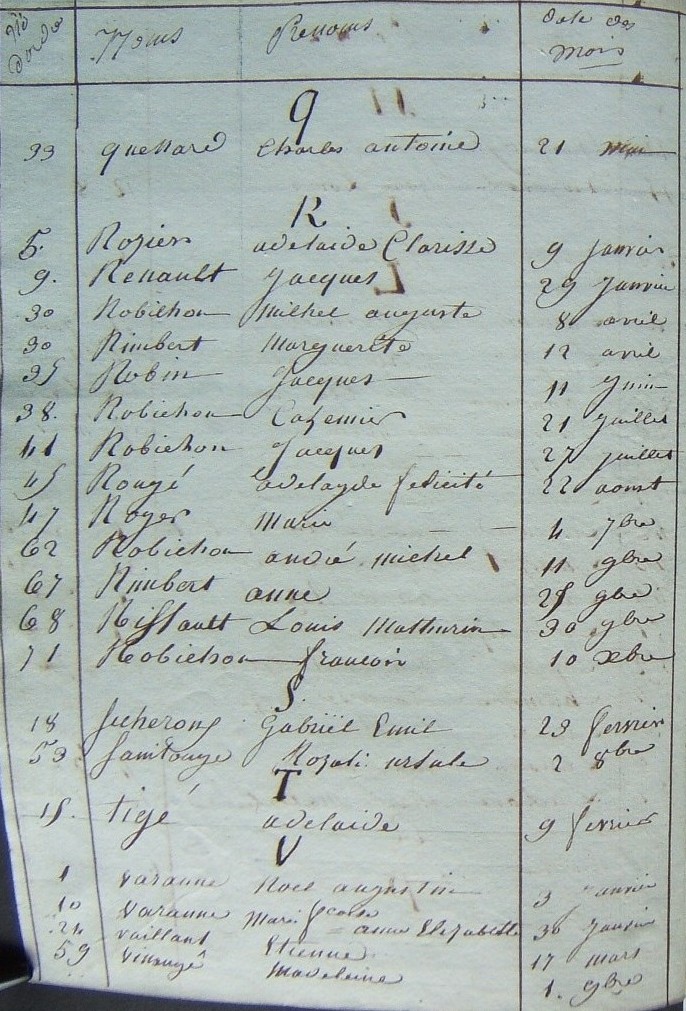 Nos d'ordre Noms Prenoms date des mois
Q
33 quellard Charles antoine 21 mai
R
5. Rozier adelaide Clarisse 9 janvier
9. Renault Jacques 29 Janvier
30 Robichon Michel auguste 8 avril
30 Rimbert Marguerite 12 avril
35 Robin Jacques 11 Juin
38. Robichon Casemier 21 Juillet
41 Robichon Jacques 27 juillet
45 Rougé adelayde felicité 22 aoust
47 Royer Marie 4 7bre
62 Robichon andré michel 11 9bre
67 Rimbert anne 25 9bre
68 Riffault Louis Mathurin 30 9bre
71 Robichon francois 10 xbre
S
18 Gabriël Emil 23 fevrier
53 Rozali ursule 2 8bre
T
15. tigé adelaide 9 fevrier
V
1 varanne Noel augustin 3 janvier
10 varanne Marie fcoise anne Elizabette 30 Janvier
24 vaillant Etienne 17 mars
59 Madeleine 1. 9bre